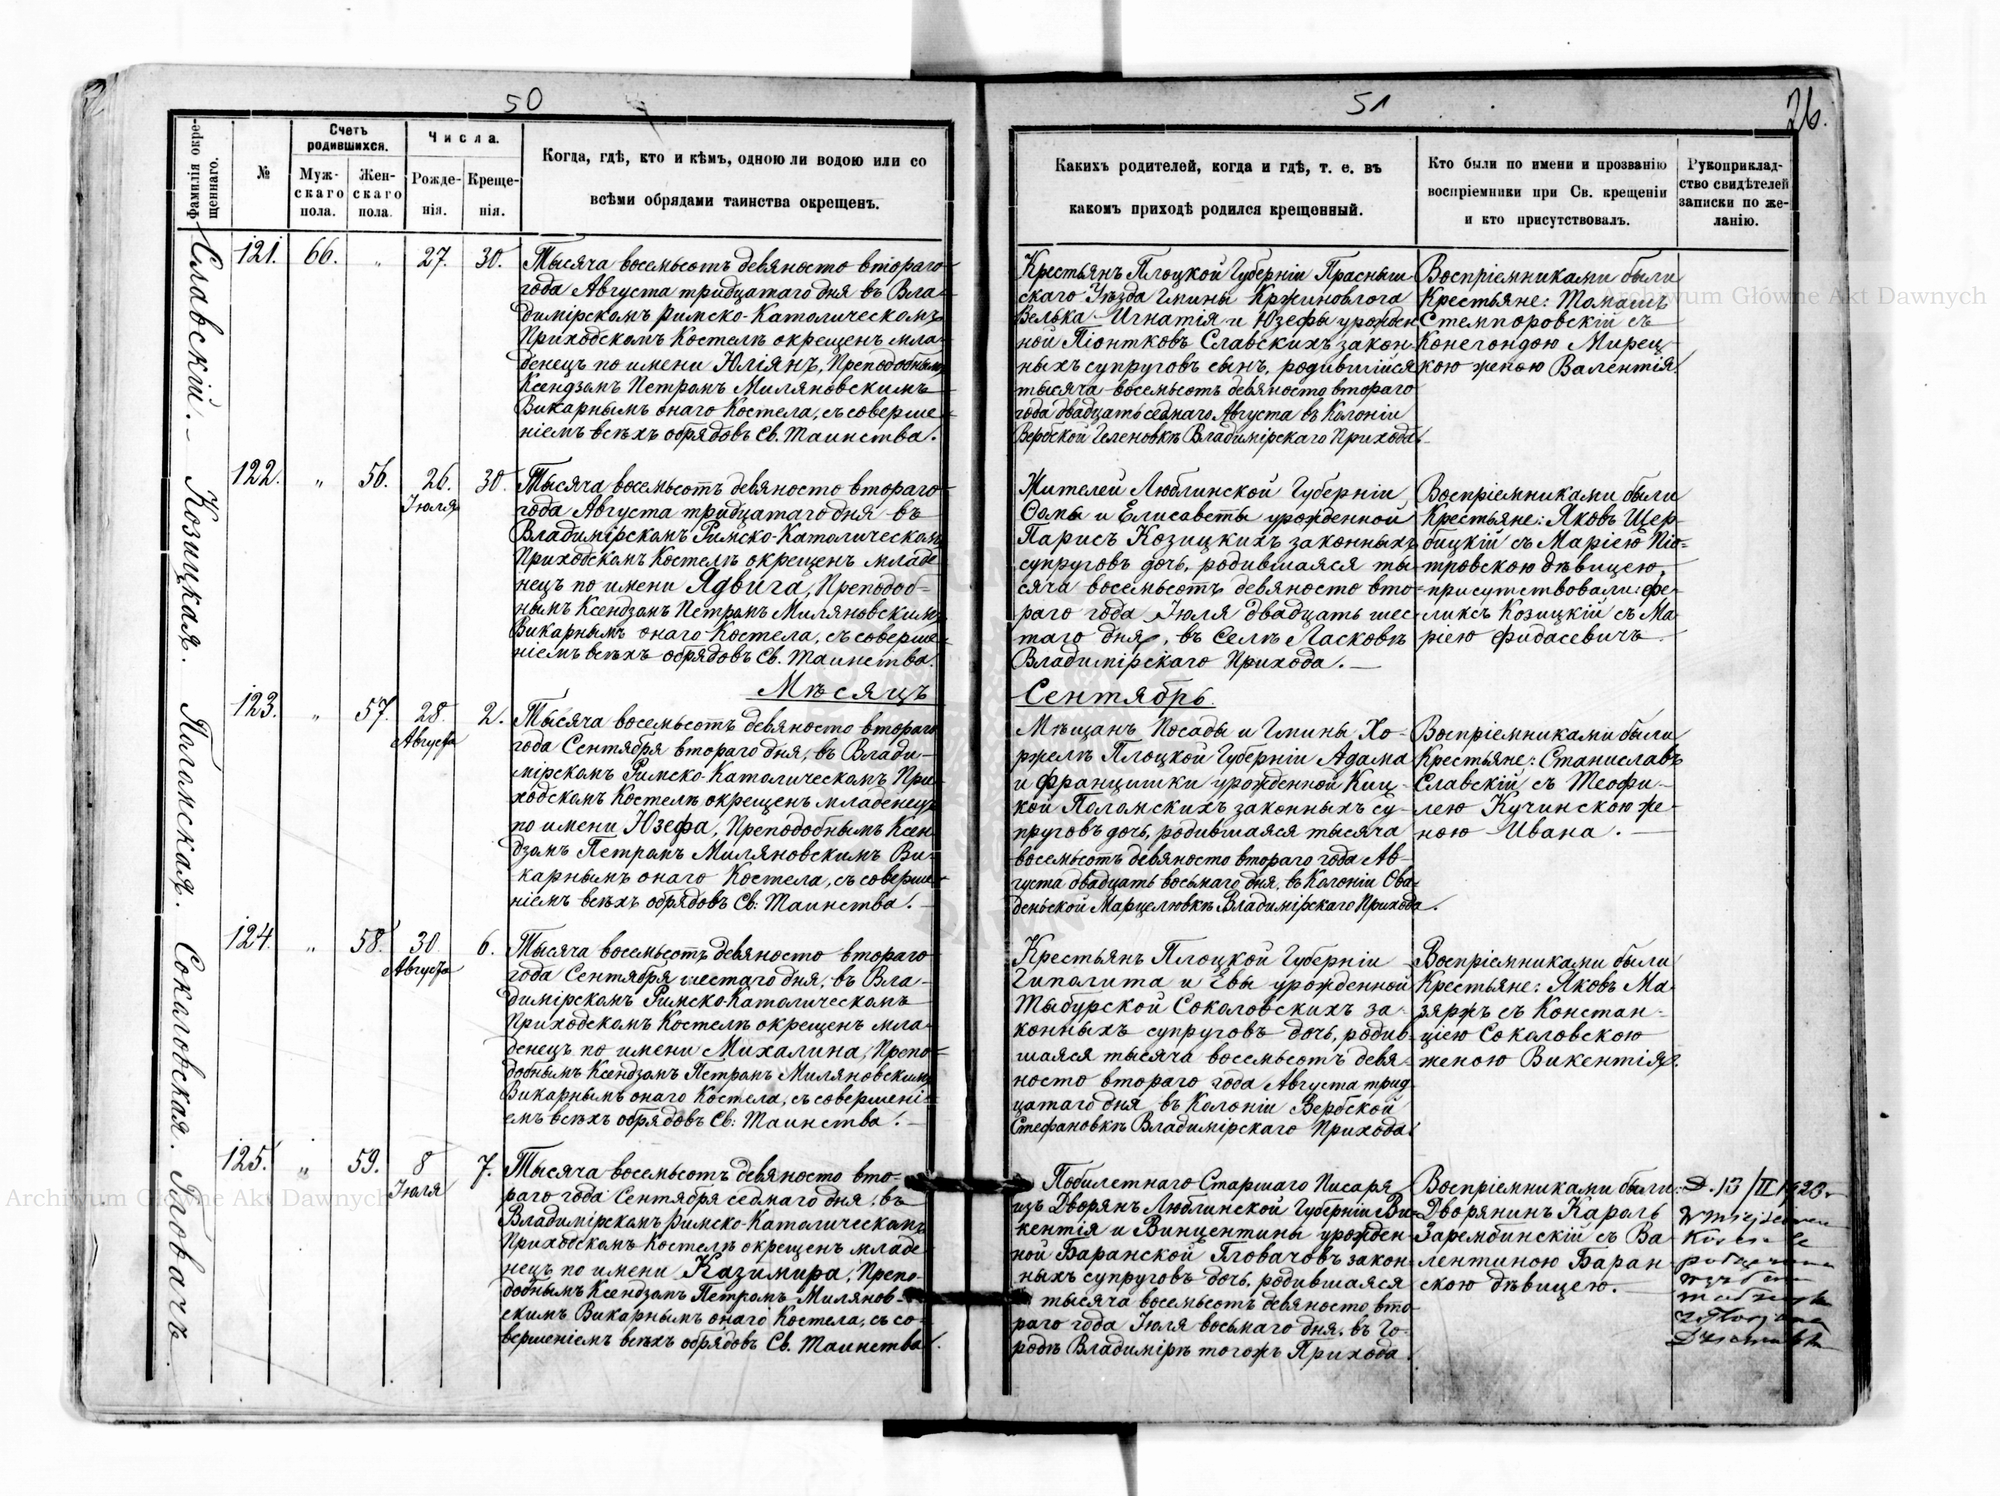 50
51
26.
Фамилія окре-
щеннаго.
№
Счетъ
родившихся.
Муж-
скаго
пола.
Жен-
скаго
пола.
Числа.
Рожде-
нія.
Креще-
нія.
Когда, гдѣ, кто и кѣмъ, одною ли водою или со
всѣми обрядами таинства окрещенъ.
Какихъ родителей, когда и гдѣ, т. е. въ
какомъ приходѣ родился крещенный.
Кто были по имени и прозванію
воспріемники при Св. крещеніи
и кто присутствовалъ.
Рукоприклад-
ство свидѣтелей
записки по же-
ланію.
Славскій.
121. 66. " 27. 30.
Тысяча восемьсотъ девяносто втораго
года Августа тридцатаго дня въ Вла-
димірскомъ Римско-Католическомъ
Приходскомъ Костелѣ окрещенъ мла-
денецъ по имени Юліянъ, Преподобнымъ
Ксендзомъ Петромъ Миляновскимъ
Викарнымъ онаго Костела, съ соверше-
ніемъ всѣхъ обрядовъ Св. Таинства.
Крестьянъ Плоцкой Губерніи Прасныш-
скаго Уѣзда Гмины Кржиновлога
Велька Игнатія и Юзефы урожден
ной Піонтковъ Славскихъ закон-
ныхъ супруговъ сынъ, родившійся
тысяча восемьсотъ девяносто втораго
года двадцать седмаго Августа въ Колоніи
Вербской Геленовкѣ Владимірскаго Прихода.
Воспріемниками были
Крестьяне: Томашъ
Стемпоровскій съ
Конегондою Мирец-
кою женою Валентія.
Козицкая.
122. " 56. 26. 30.
Іюля
Тысяча восемьсотъ девяносто втораго
года Августа тридцатаго дня въ
Владимірскомъ Римско-Католическомъ
Приходскомъ Костелѣ окрещенъ младе
нецъ по имени Ядвига, Преподоб-
нымъ Ксендзомъ Петромъ Миляновскимъ
Викарнымъ онаго Костела, съ соверше-
ніемъ всѣхъ обрядовъ Св. Таинства.
Жителей Люблинской Губерніи
Ѳомы и Елисаветы урожденной
Парисъ Козицкихъ законныхъ
супруговъ дочь, родившаяся ты-
сяча восемьсотъ девяносто вто-
раго года Іюля двадцать шес-
таго дня, въ Селѣ Ласковѣ
Владимірскаго Прихода.
Воспріемниками были
Крестьяне: Яковъ Щер-
бицкій съ Маріею Піо-
тровскою дѣвицею,
присутствовали: Фе-
ликсъ Козицкій съ Ма-
ріею Фидасевичъ.
Мѣсяцъ Сентябрь.
Поломская.
123. " 57. 28. 2.
Августа
Тысяча восемьсотъ девяносто втораго
года Сентября втораго дня, въ Влади-
мірскомъ Римско-Католическомъ При-
ходскомъ Костелѣ окрещенъ младенецъ
по имени Юзефа, Преподобнымъ Ксен
дзомъ Петромъ Миляновскимъ Ви-
карнымъ онаго Костела, съ соверше-
ніемъ всѣхъ обрядовъ Св: Таинства.
Мѣщанъ Посады и Гмины Хо-
ржелъ Плоцкой Губерніи Адама
и Францишки урожденной Киц-
кой Поломскихъ законныхъ су-
пруговъ дочь, родившаяся тысяча
восемьсотъ девяносто втораго года Ав-
густа двадцать восьмаго дня, въ Колоніи Ова-
деньской Марцелювкѣ Владимірскаго Прихода.
Воспріемниками были
Крестьяне: Станиславъ
Славскій съ Теофи-
лею Кучинскою же-
ною Ивана.
Соколовская.
124. " 58. 30 6.
Августа
Тысяча восемьсотъ девяносто втораго
года Сентября шестаго дня, въ Вла-
димірскомъ Римско-Католическомъ
Приходскомъ Костелѣ окрещенъ мла-
денецъ по имени Михалина, Препо-
добнымъ Ксендзомъ Петромъ Миляновскимъ
Викарнымъ онаго Костела, съ совершені-
емъ всѣхъ обрядовъ Св: Таинства.
Крестьянъ Плоцкой Губерніи
Гиполита и Евы урожденной
Тыбурской Соколовскихъ за-
конныхъ супруговъ дочь, родив-
шаяся тысяча восемьсотъ девя-
носто втораго года Августа трид-
цатаго дня въ Колоніи Вербской
Стефановкѣ Владимірскаго Прихода.
Воспріемниками были
Крестьяне: Яковъ Ма-
зяржъ съ Констан-
ціею Соколовскою
женою Викентія.
Гловачъ
125. " 59. 8 7.
Іюля
Тысяча восемьсотъ девяносто вто-
раго года Сентября седмаго дня, въ
Владимірскомъ Римско-Католическомъ
Приходскомъ Костелѣ окрещенъ младе-
нецъ по имени Казимира, Препо-
добнымъ Ксендзомъ Петромъ Милянов-
скимъ Викарнымъ онаго Костела, съ со-
вершеніемъ всѣхъ обрядовъ Св. Таинства.
Побилетнаго Старшаго Писаря
изъ Дворянъ Люблинской Губерніи Ви-
кентія и Винцентины урожден-
ной Баранской Гловачовъ закон-
ныхъ супруговъ дочь, родившаяся
тысяча восемьсотъ девяносто вто-
раго года Іюля восьмаго дня, въ Го-
родѣ Владимірѣ тогожъ Прихода.
Воспріемниками были:
Дворянинъ Кароль
Зарембинскій съ Ва
лентиною Баран-
скою дѣвицею.
D. 13/II 1923
w miejscowym
Kościele
Archiwum Główne Akt Dawnych
Archiwum Główne Akt Dawnych